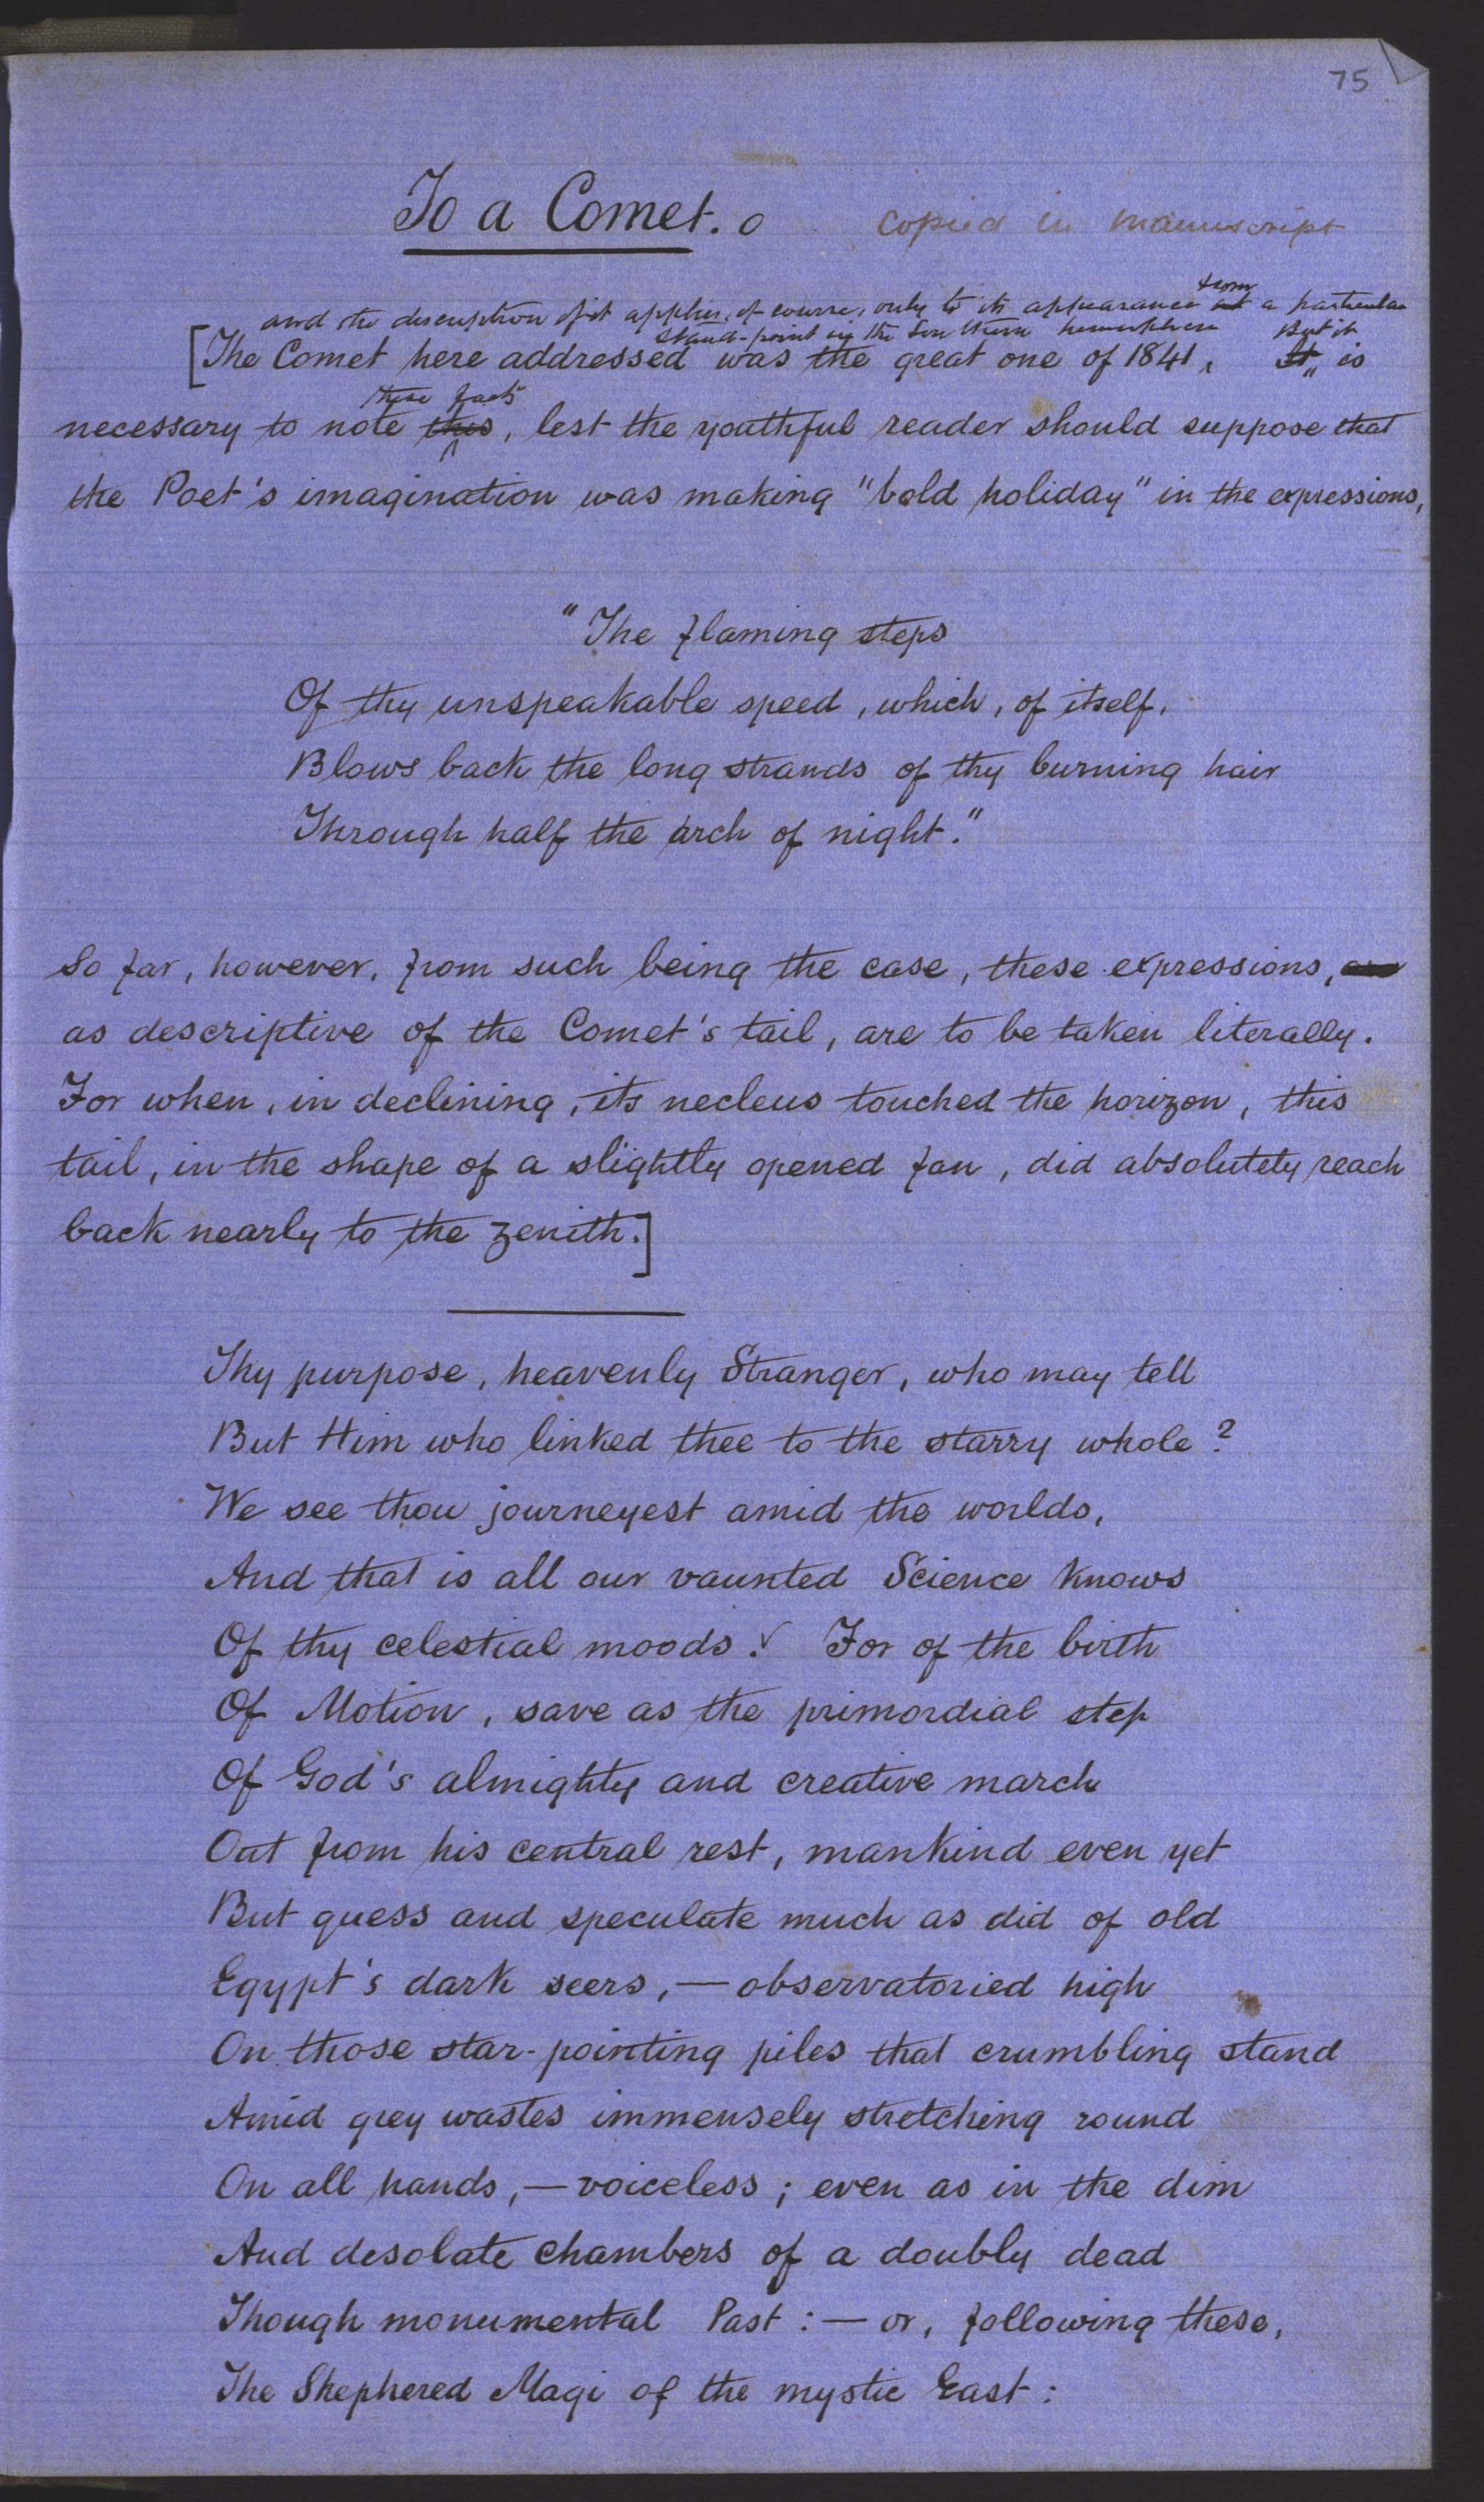 75
To a Comet. o
copied in manuscript
and the description of it applies, of course, only to its appearance at from a particular
stand-point in the Southern hemisphere But it
[The Comet here addressed was the great one of 1841, It is
these facts
necessary to note this, lest the youthful reader should suppose that
the Poet's imagination was making "bold holiday" in the expressions,
"The flaming steps
Of thy unspeakable speed, which, of itself,
Blows back the long strands of thy burning hair
Through half the arch of night."
So far, however, from such being the case, these expressions,
as descriptive of the Comet's tail, are to be taken literally.
For when, in declining, its necleus touched the horizon, this
tail, in the shape of a slightly opened fan, did absolutely reach
back nearly to the zenith.]
Thy purpose, heavenly Stranger, who may tell
But Him who linked thee to the starry whole?
We see thou journeyest amid the worlds,
And that is all our vaunted Science knows
Of thy celestial moods. For of the birth
Of Motion, save as the primordial step
Of God's almighty and creative march
Out from his central rest, mankind even yet
But guess and speculate much as did of old
Egypt's dark seers,—observatoried high
On those star-pointing piles that crumbling stand
Amid grey wastes immensely stretching round
On all hands,—voiceless; even as in the dim
And desolate chambers of a doubly dead
Though monumental Past:—or, following these,
The Shephered Magi of the mystic East: